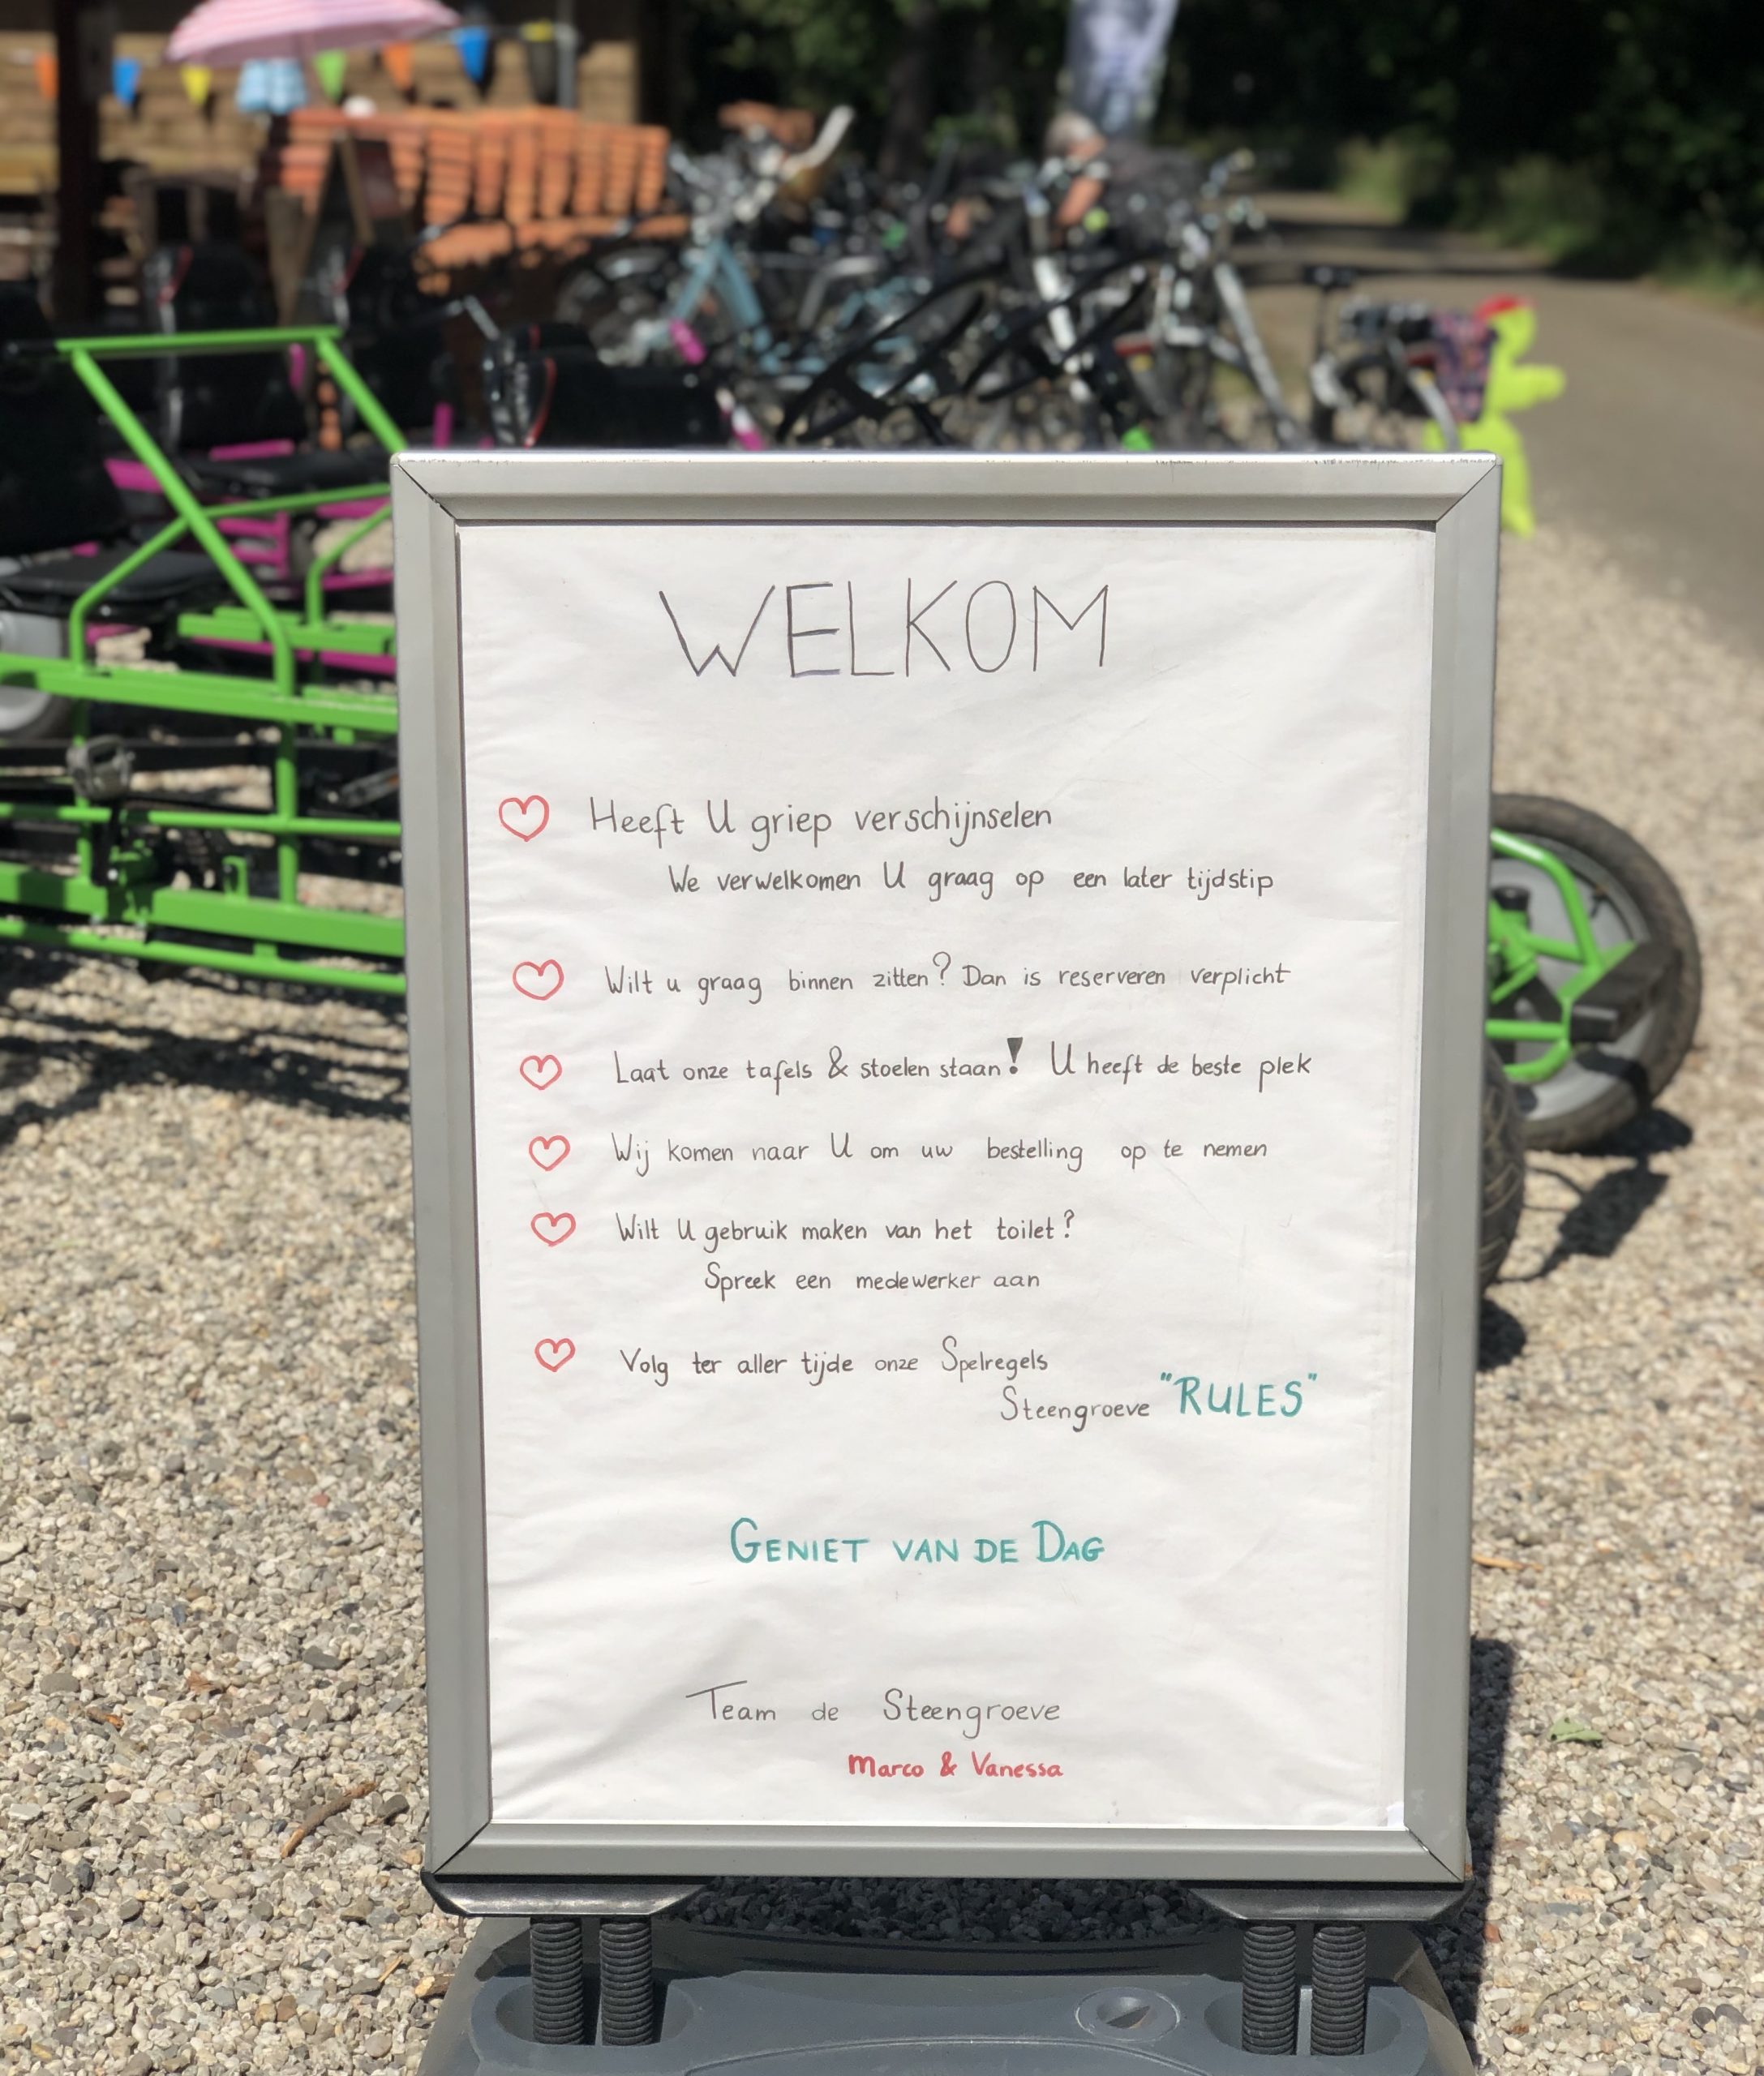 WELKOM
Heeft U griep verschijnselen
We verwelkomen U graag op een later tijdstip
Wilt u graag binnen zitten? Dan is reserveren verplicht
Laat onze tafels & stoelen staan! U heeft de beste plek
Wij komen naar U om uw bestelling op te nemen
Wilt U gebruik maken van het toilet?
Spreek een medewerker aan
Volg ter aller tijde onze Spelregels
Steengroeve "RULES"
GENIET VAN DE DAG
Team de Steengroeve
Marco & Vanessa